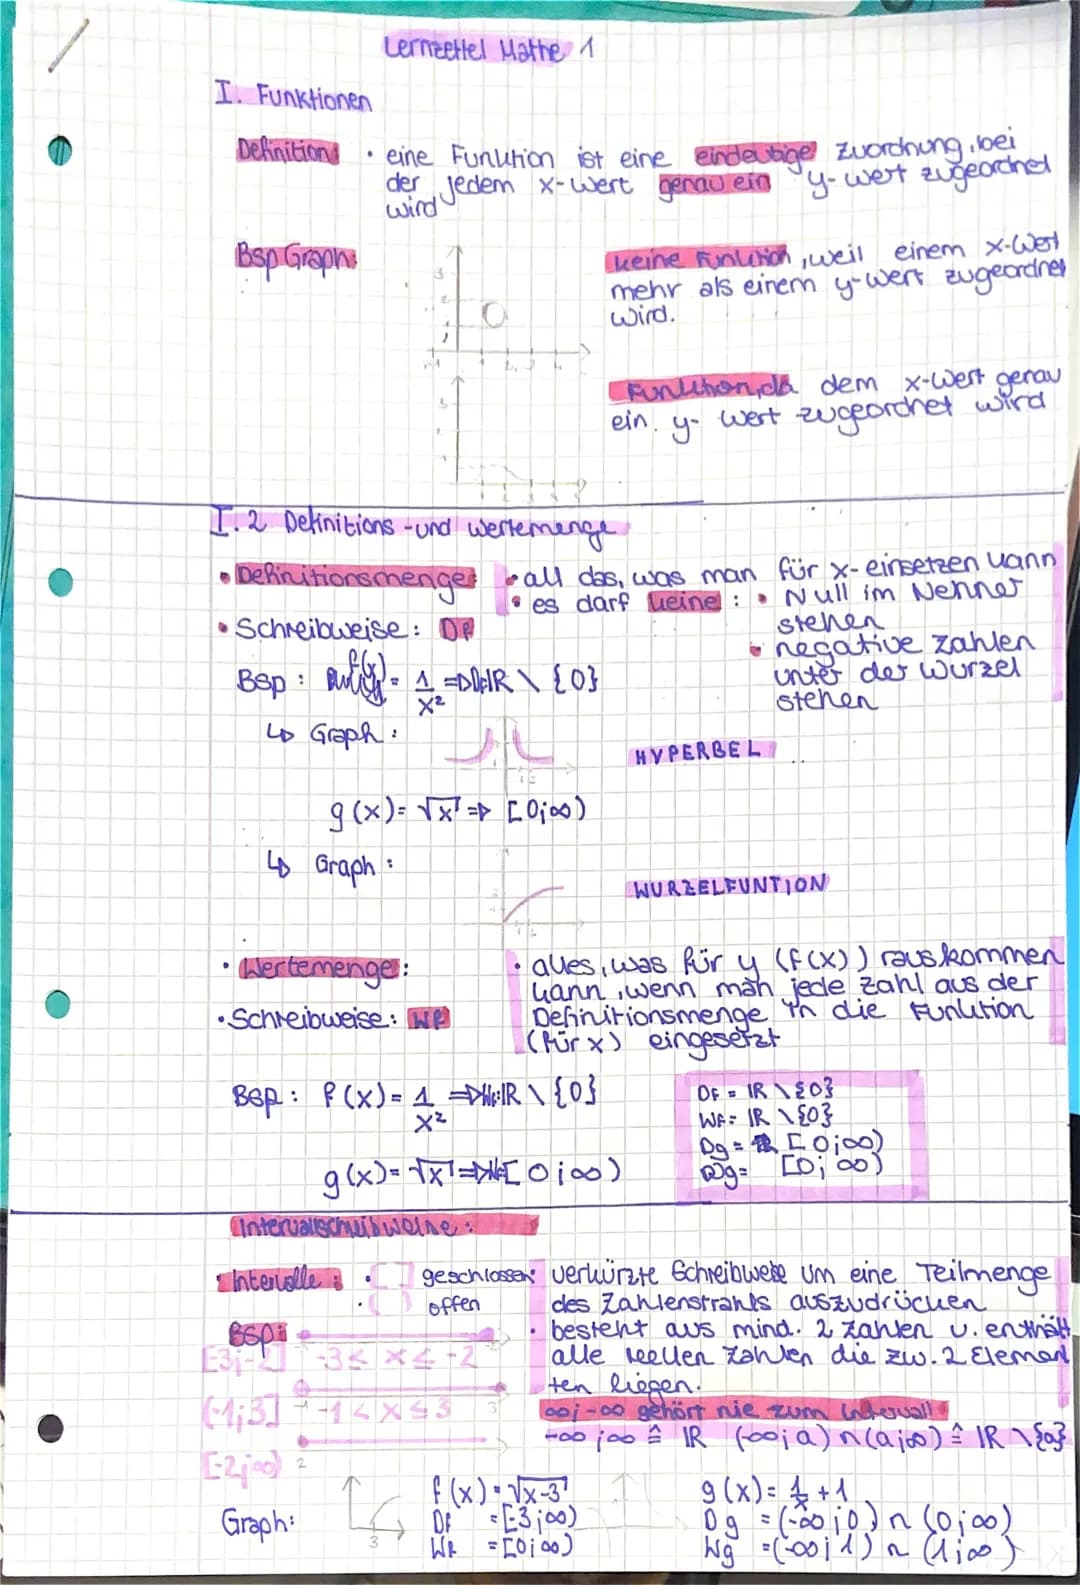 Lernzettel Mathe 1
I. Funktionen
Definition: • eine Funktion ist eine eindeutige Zuordnung, bei
der jedem x-Wert genau ein y-Wert zugeordnet
wird
Bsp Graph:
keine Funktion, weil einem x-Wert
mehr als einem y-Wert zugeordnet
wird.
Funktion, da dem x-Wert genau
ein y-Wert zugeordnet wird
I.2 Definitions-und Wertemenge
• Definitionsmenge: • all das, was man für x-einsetzen kann
• es darf keine: • Null im Nenner
stehen
• Schreibweise: Df
• negative Zahlen
unter der Wurzel
stehen
Bsp: f(x) = 1/x² => Df=ℝ \ {0}
↳ Graph:
HYPERBEL
g(x) = √x => [0;∞)
↳ Graph:
WURZELFUNTION
• Wertemenge: • alles, was für y (f(x)) rauskommen
kann, wenn man jede Zahl aus der
• Schreibweise: Wf Definitionsmenge in die Funktion
(für x) eingesetzt
Bsp: f(x) = 1/x² => Wf=ℝ \ {0}
g(x) = √x => Wf=[0;∞)
Df = ℝ \ {0}
Wf = ℝ \ {0}
Dg = [0;∞)
Wg = [0;∞)
Intervallschreibweise:
• Intervalle: • [ ] geschlossen
• ( ) offen
• verkürzte Schreibweise um eine Teilmenge
des Zahlenstrahls auszudrücken
• besteht aus mind. 2 Zahlen u. enthält
alle reellen Zahlen die zw. 2 Elemen
ten liegen.
Bsp:
[-3;-2] -3 ≤ x ≤ -2
(-1;3] -1 < x ≤ 3
[-2;∞)
∞;-∞ gehört nie zum Intervall!
-∞;∞ ≙ ℝ (-∞;a) ∩ (a;∞) ≙ ℝ \ {a}
Graph:
3
f(x) = √x-3
Df = [-3;∞)
Wf = [0;∞)
g(x) = 1/x + 1
Dg = (-∞;0) ∩ (0;∞)
Wg = (-∞;1) ∩ (1;∞)